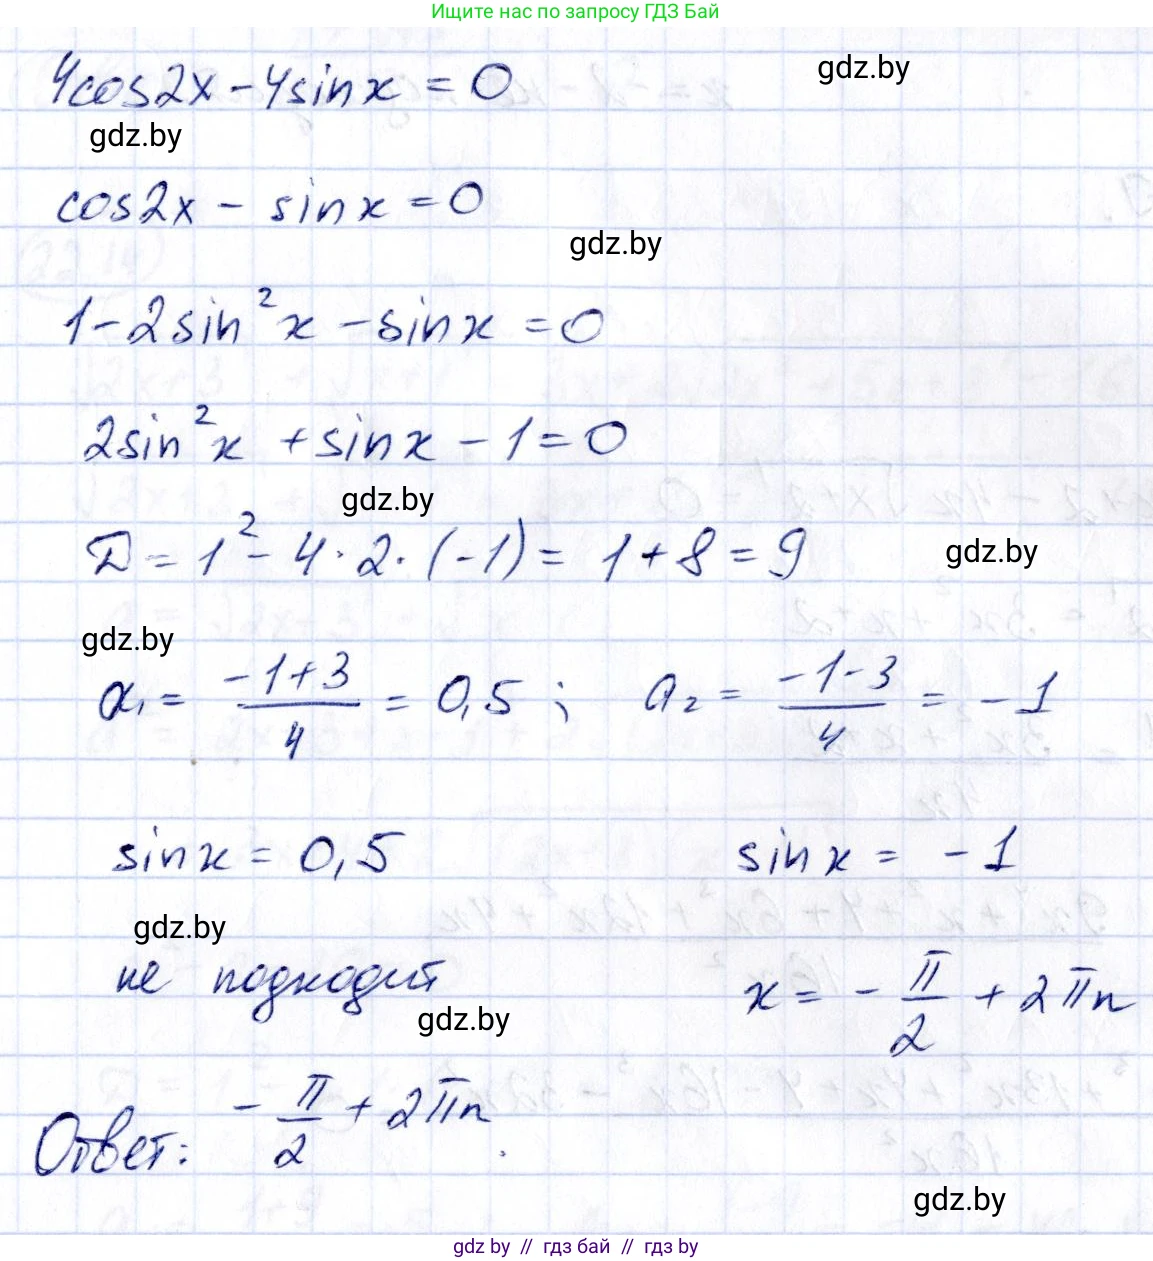 Ищите нас по запросу ГДЗ Бай
4cos2x - 4sinx = 0
gdz.by
gdz.by
cos2x - sinx = 0
gdz.by
1 - 2sin²x - sinx = 0
2sin²x + sinx - 1 = 0
gdz.by
D = 1² - 4 · 2 · (-1) = 1 + 8 = 9
gdz.by
gdz.by
a₁ = (-1+3)/4 = 0,5 ; a₂ = (-1-3)/4 = -1
sinx = 0,5 sinx = -1
gdz.by
не подходит x = -π/2 + 2πn
gdz.by
Ответ: -π/2 + 2πn.
gdz.by
gdz.by // гдз бай // гдз by